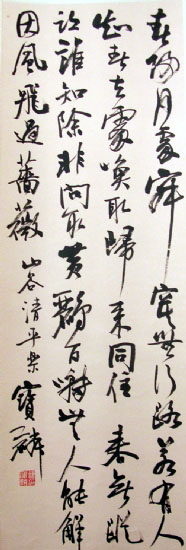 春歸何處寂寞無行路若有人
知春去處喚取歸來同住春無蹤
跡誰知除非問取黃鸝百囀無人能解
因風飛過薔薇山谷清平樂寶麟